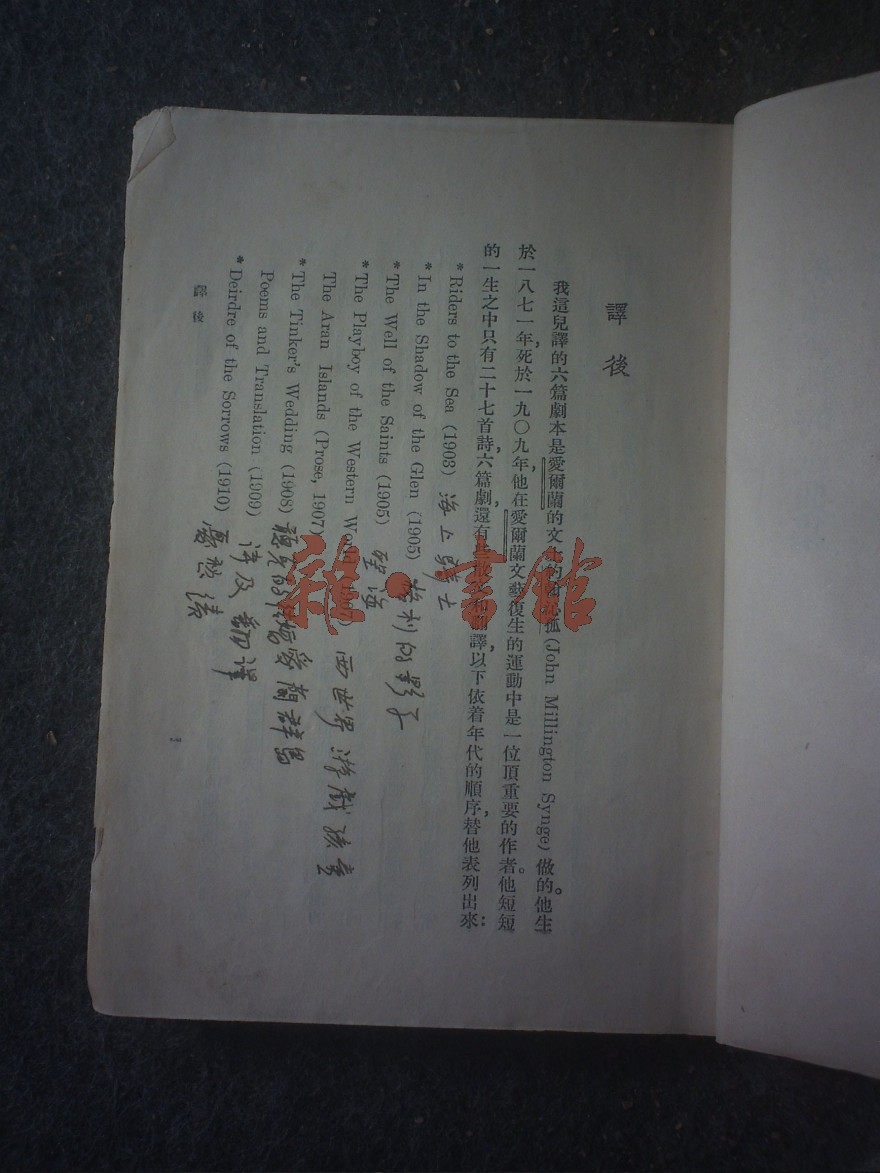 譯後
我這兒譯的六篇劇本是愛爾蘭的文生約翰沁孤(John Millington Synge)做的。他生
於一八七一年,死於一九〇九年,他在愛爾蘭文藝復生的運動中是一位頂重要的作者。他短短
的一生之中只有二十七首詩,六篇劇,還有些散文和翻譯,以下依着年代的順序,替他表列出來:
*Riders to the Sea (1903) 海上騎士
*In the Shadow of the Glen (1905) 的影子
*The Well of the Saints (1905) 聖
*The Playboy of the Western World 1907) 西世界游戲
The Aran Islands (Prose, 1907) 愛蘭群島
*The Tinker's Wedding (1908)
Poems and Translation (1909) 詩及翻譯
*Deirdre of the Sorrows (1910)
譯後
1
雜·書館